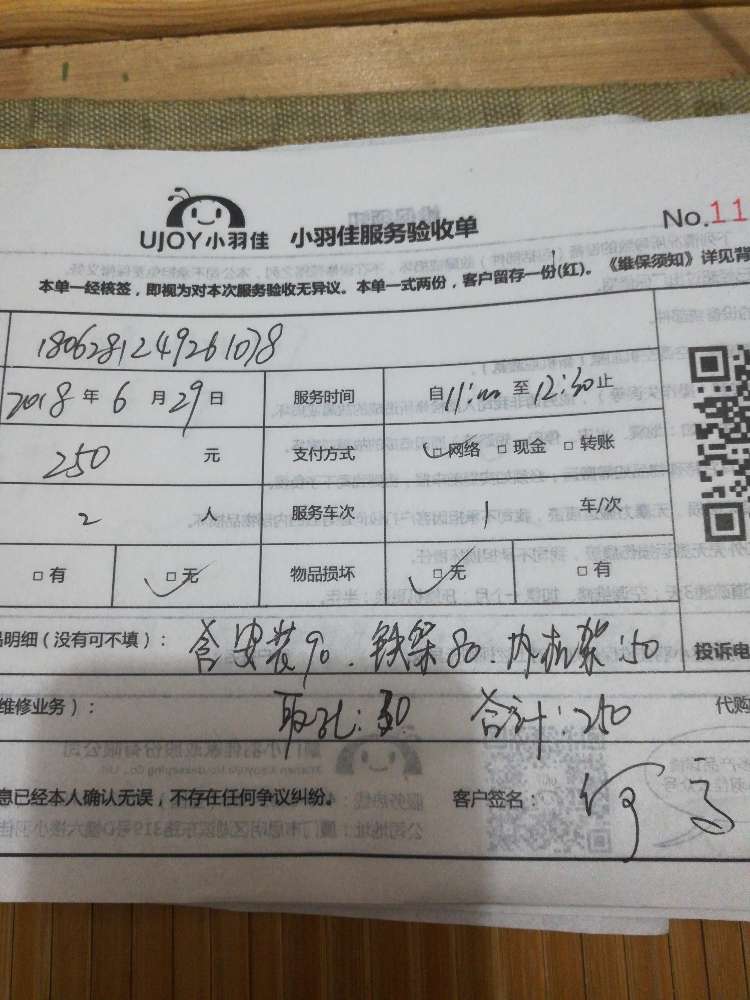 UJOY小羽佳 小羽佳服务验收单 No.11
本单一经核签，即视为对本次服务验收无异议。本单一式两份，客户留存一份(红)。《维保须知》详见背
1806281249261078
2018年6月29日 服务时间 自11:00至12:30止
250 元 支付方式 □网络 □现金 □转账
2 人 服务车次 1 车/次
□有 □无 物品损坏 □无 □有
明细（没有可不填）： 含安装90、铁架80、内机架:50 投诉电
维修业务）： 取孔:30 合计:250 代购
息已经本人确认无误，不存在任何争议纠纷。 客户签名：何